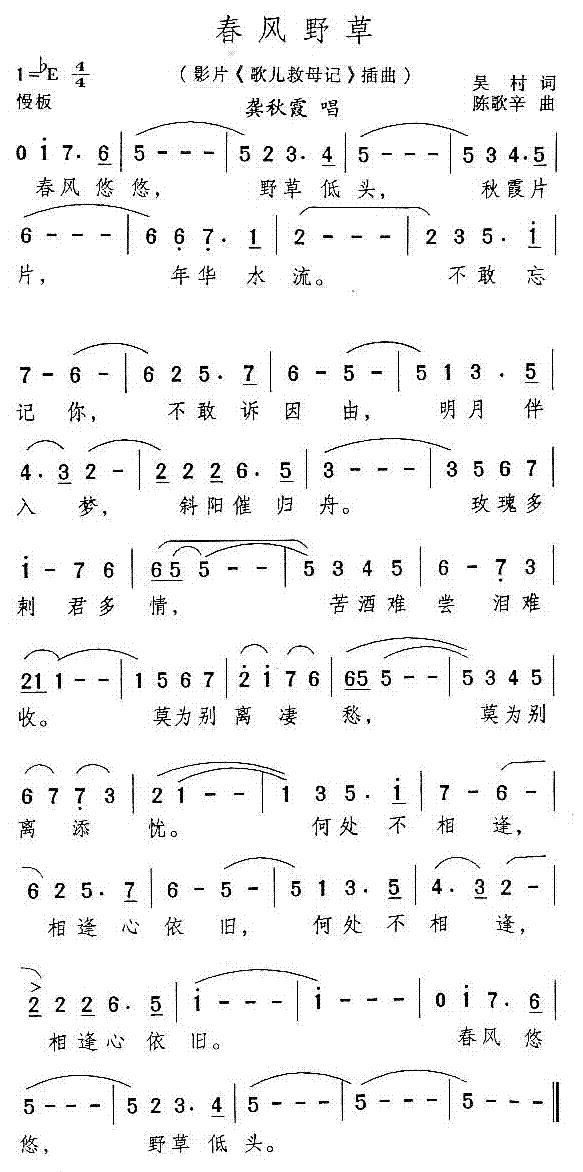 春风野草
1=♭E 4/4 （影片《歌儿救母记》插曲） 吴村 词
慢板 龚秋霞 唱 陈歌辛 曲
0 i 7. 6 | 5 - - - | 5 2 3. 4 | 5 - - - | 5 3 4. 5 |
春风悠悠， 野草低头， 秋霞片
6 - - - | 6 6 7. 1 | 2 - - - | 2 3 5. i |
片， 年华水流。 不敢忘
7 - 6 - | 6 2 5. 7 | 6 - 5 - | 5 1 3. 5 |
记你， 不敢诉因由， 明月伴
4. 3 2 - | 2 2 2 6. 5 | 3 - - - | 3 5 6 7 |
入梦， 斜阳催归舟。 玫瑰多
i - 7 6 | 6 5 5 - - | 5 3 4 5 | 6 - 7 3 |
刺君多情， 苦酒难尝泪难
2 1 1 - - | 1 5 6 7 | 2 i 7 6 | 6 5 5 - - | 5 3 4 5 |
收。 莫为别离凄愁， 莫为别
6 7 7 3 | 2 1 - - | 1 3 5. i | 7 - 6 - |
离添忧。 何处不相逢，
6 2 5. 7 | 6 - 5 - | 5 1 3. 5 | 4. 3 2 - |
相逢心依旧， 何处不相逢，
> 2 2 2 6. 5 | i - - - | i - - - | 0 i 7. 6 |
相逢心依旧。 春风悠
5 - - - | 5 2 3. 4 | 5 - - - | 5 - - - ‖
悠， 野草低头。